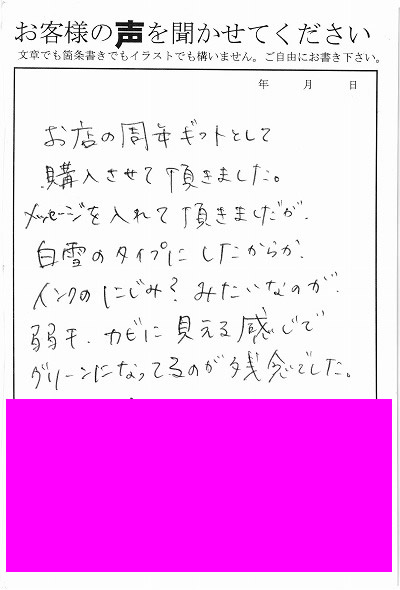 お客様の声を聞かせてください
文章でも箇条書きでもイラストでも構いません。ご自由にお書き下さい。
年 月 日
お店の周年ギフトとして
購入させて頂きました。
メッセージを入れて頂きましたが、
白雪のタイプにしたからか、
インクのにじみ?みたいなのが、
弱干、カビに見える感じで
グリーンになってるのが残念でした。